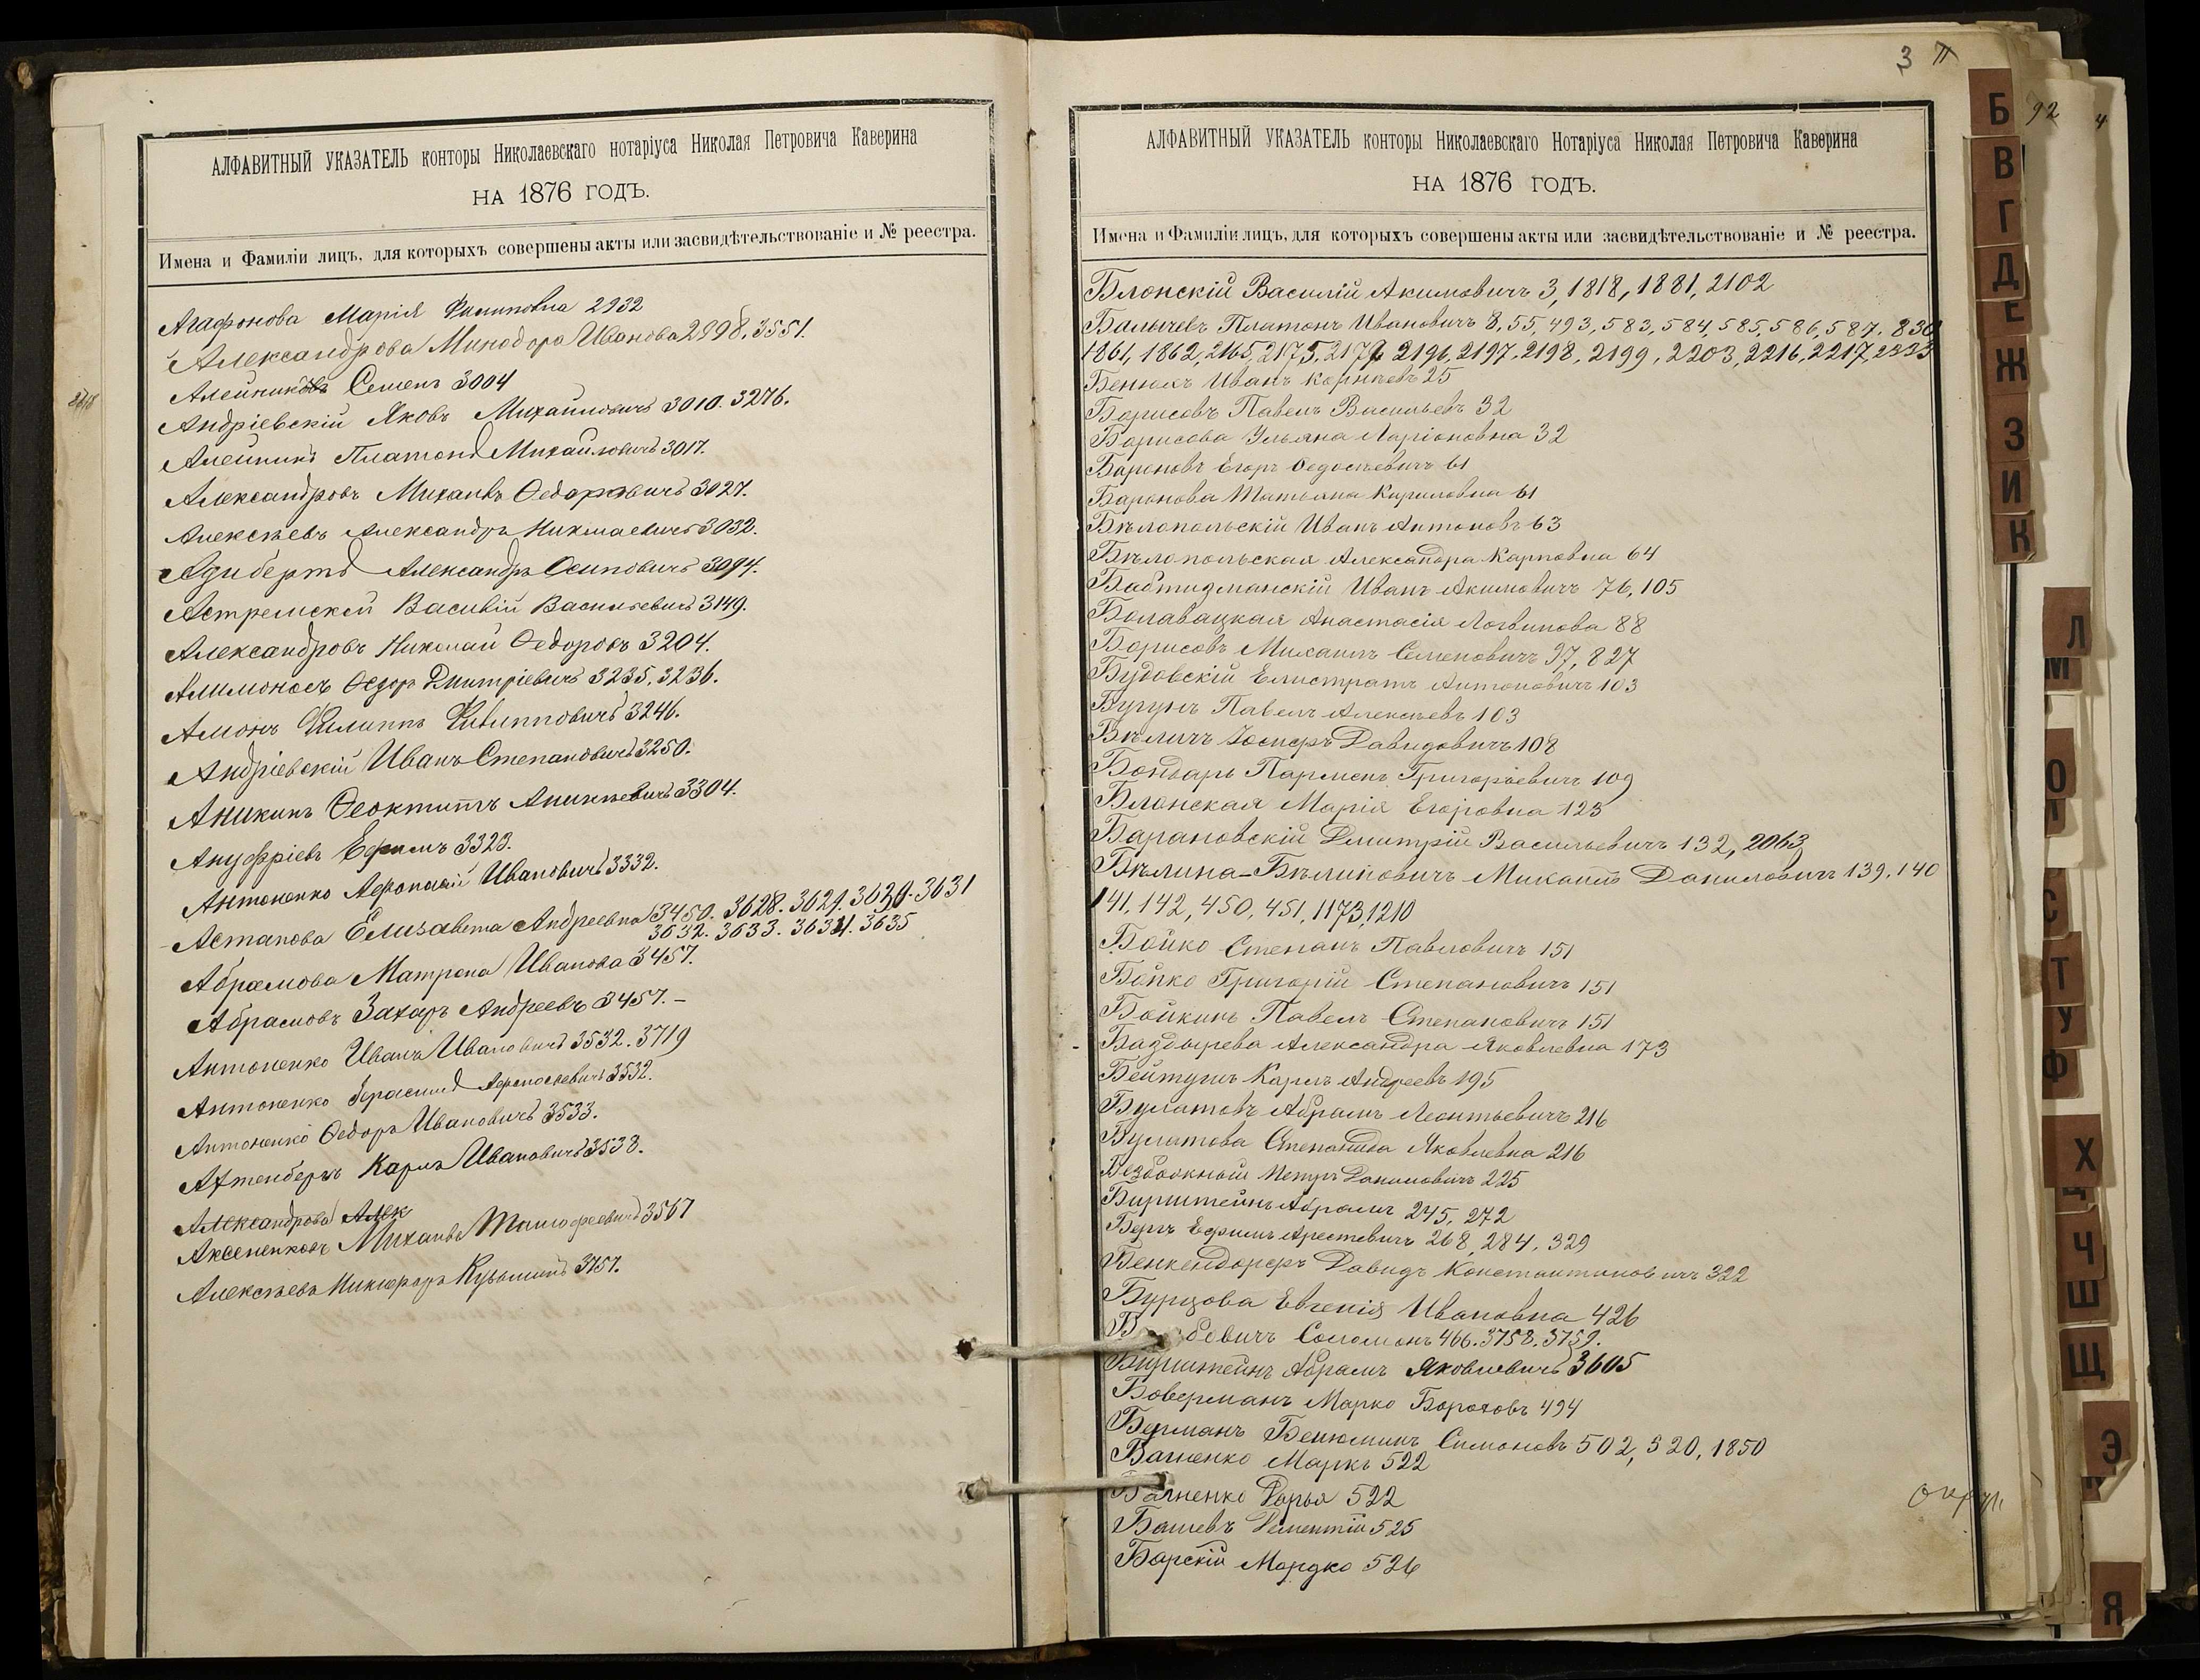 АЛФАВИТНЫЙ УКАЗАТЕЛЬ конторы Николаевскаго нотаріуса Николая Петровича Каверина
НА 1876 ГОДЪ.
Имена и Фамиліи лицъ, для которыхъ совершены акты или засвидѣтельствованіе и № реестра.
Агафонова Марія Филиповна 2932
Александрова Минодора Иванова 2998, 3551.
Алейниковъ Семенъ 3004
Андріевскій Яковъ Михайловичъ 3010. 3276.
Алейникъ Платонъ Михайловичъ 3017.
Александровъ Михаилъ Ѳедоровичъ 3027.
Алексѣевъ Александръ Николаевичъ 3032.
Александръ Осиповичъ 3094.
Астремскій Василій Васильевичъ 3149.
Александровъ Николай Ѳедоровъ 3204.
Алимоносъ Ѳедоръ Дмитріевичъ 3235, 3236.
Амонъ Филиппъ Филипповичъ 3246.
Андріевскій Иванъ Степановичъ 3250.
Аникинъ Ѳеоктистъ Аникѣевичъ 3304.
Ануфріевъ Ефимъ 3323.
Антоненко Афонасій Ивановичъ 3332.
Астапова Елизавета Андреевна 3450. 3628. 3629. 3630. 3631
3632. 3633. 3634. 3635
Абрамова Матрена Иванова 3457.
Абрамовъ Захаръ Андреевъ 3457. –
Антоненко Иванъ Ивановичъ 3532. 3719
Антоненко Герасимъ Афонасьевичъ 3532.
Антоненко Ѳедоръ Ивановичъ 3533.
Ахтенбергъ Карлъ Ивановичъ 3538.
Александрова Алек
Аксененковъ Михаилъ Тимофеевичъ 3567
Алексѣевъ Никифоръ Кузьминъ 3757.
3
АЛФАВИТНЫЙ УКАЗАТЕЛЬ конторы Николаевскаго Нотаріуса Николая Петровича Каверина
НА 1876 ГОДЪ.
Имена и Фамиліи лицъ, для которыхъ совершены акты или засвидѣтельствованіе и № реестра.
Блонскій Василій Акимовичъ 3, 1818, 1881, 2102
Балычевъ Платонъ Ивановичъ 8, 55, 493, 583, 584, 585, 586, 587, 830
1861, 1862, 2165, 2175, 2179, 2196, 2197, 2198, 2199, 2203, 2216, 2217, 2333
Бенюхъ Иванъ Корнѣевъ 25
Борисовъ Павелъ Васильевъ 32
Борисова Ульяна Ларіоновна 32
Бароновъ Егоръ Ѳедосѣевичъ 61
Баронова Татьяна Кириловна 61
Бѣлопольскій Иванъ Антоновъ 63
Бѣлопольская Александра Карповна 64
Иванъ Акимовичъ 76, 105
Болавацкая Анастасія Логвинова 88
Борисовъ Михаилъ Семеновичъ 97, 827
Будовскій Елистратъ Антоновичъ 103
Бугунъ Павелъ Алексѣевъ 103
Бѣличъ Іосифъ Давидовичъ 108
Бондарь Парменъ Григорьевичъ 109
Блонская Марія Егоровна 123
Барановскій Дмитрій Васильевичъ 132, 2063
Бѣлина-Бѣлиновичъ Михаилъ Даниловичъ 139, 140
141, 142, 450, 451, 1173, 1210
Бойко Степанъ Павловичъ 151
Бойко Григорій Степановичъ 151
Бойкинъ Павелъ Степановичъ 151
Баздырева Александра Яковлевна 173
Карлъ Андреевъ 195
Булатовъ Абрамъ Леонтьевичъ 216
Булатова Степанида Яковлевна 216
Безбожный Петръ Даниловичъ 225
Бирштейнъ Абрамъ 245, 272
Бергъ Ефимъ Арестевичъ 268, 284, 329
Бенкендорфъ Давидъ Константиновичъ 322
Бурцова Евгенія Ивановна 426
Соломонъ 466. 3758. 3759.
Бирштейнъ Абрамъ Яковлевичъ 3605
Боверманъ Марко Бороховъ 494
Берманъ Бенюминъ Симоновъ 502, 520, 1850
Багненко Маркъ 522
Багненко Дарья 522
Башевъ Дементій 525
Барскій Мордко 526
Б
В
Г
Д
Е
Ж
З
И
К
92
4
Л
М
О
С
Т
У
Ф
Х
Ц
Ч
Ш
Щ
Э
Я